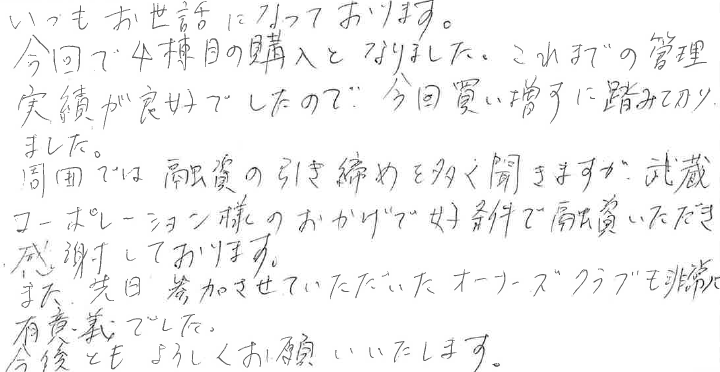 いつもお世話になっております。
今回で4棟目の購入となりました。これまでの管理
実績が良好でしたので、今回買い増すに踏み切り
ました。
周囲では融資の引き締めを多く聞きますが、武蔵
コーポレーション様のおかげで好条件で融資いただき
感謝しております。
また、先日参加させていただいたオーナーズクラブも非常に
有意義でした。
今後ともよろしくお願いいたします。